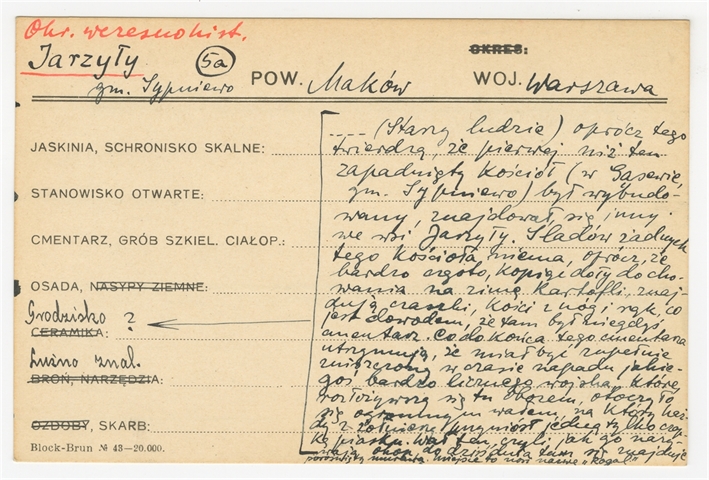 Okr. wczesnohist.
Jarzyły (5a) OKRES:
gm. Sypniewo POW. Maków WOJ. Warszawa
JASKINIA, SCHRONISKO SKALNE:
STANOWISKO OTWARTE:
CMENTARZ, GRÓB SZKIEL. CIAŁOP.:
OSADA, NASYPY ZIEMNE:
Grodzisko ?
CERAMIKA:
Luźno znal.
BROŃ, NARZĘDZIA:
OZDOBY, SKARB:
Block-Brun № 43-20.000.
.... (Starzy ludzie) oprócz tego
twierdzą, że pierwej niż ten
zapadnięty kościół (w Gąsewie,
gm. Sypniewo) był wybudo-
wany, znajdował się inny
we wsi Jarzyły. Śladów żadnych
tego kościoła niema, oprócz, że
bardzo często, kopiąc doły do cho-
wania na zimę kartofli, znaj-
dują czaszki, kości z nóg i rąk, co
jest dowodem, że tam był niegdyś
cmentarz. Co do końca tego cmentarza
utrzymują, że miał być zupełnie
zniszczony w czasie napadu jakie-
goś bardzo licznego wojska, które,
rozłożywszy się tu obozem, otoczyło
się ogromnym wałem, na który każ-
dy z żołnierzy przyniósł jedną tylko czap-
kę piasku. Wał ten, czyli, jak go nazy-
wają, okop, do dziś dnia tam się znajduje
porośnięty murawą. Miejsce to nosi nazwę „Rogal"